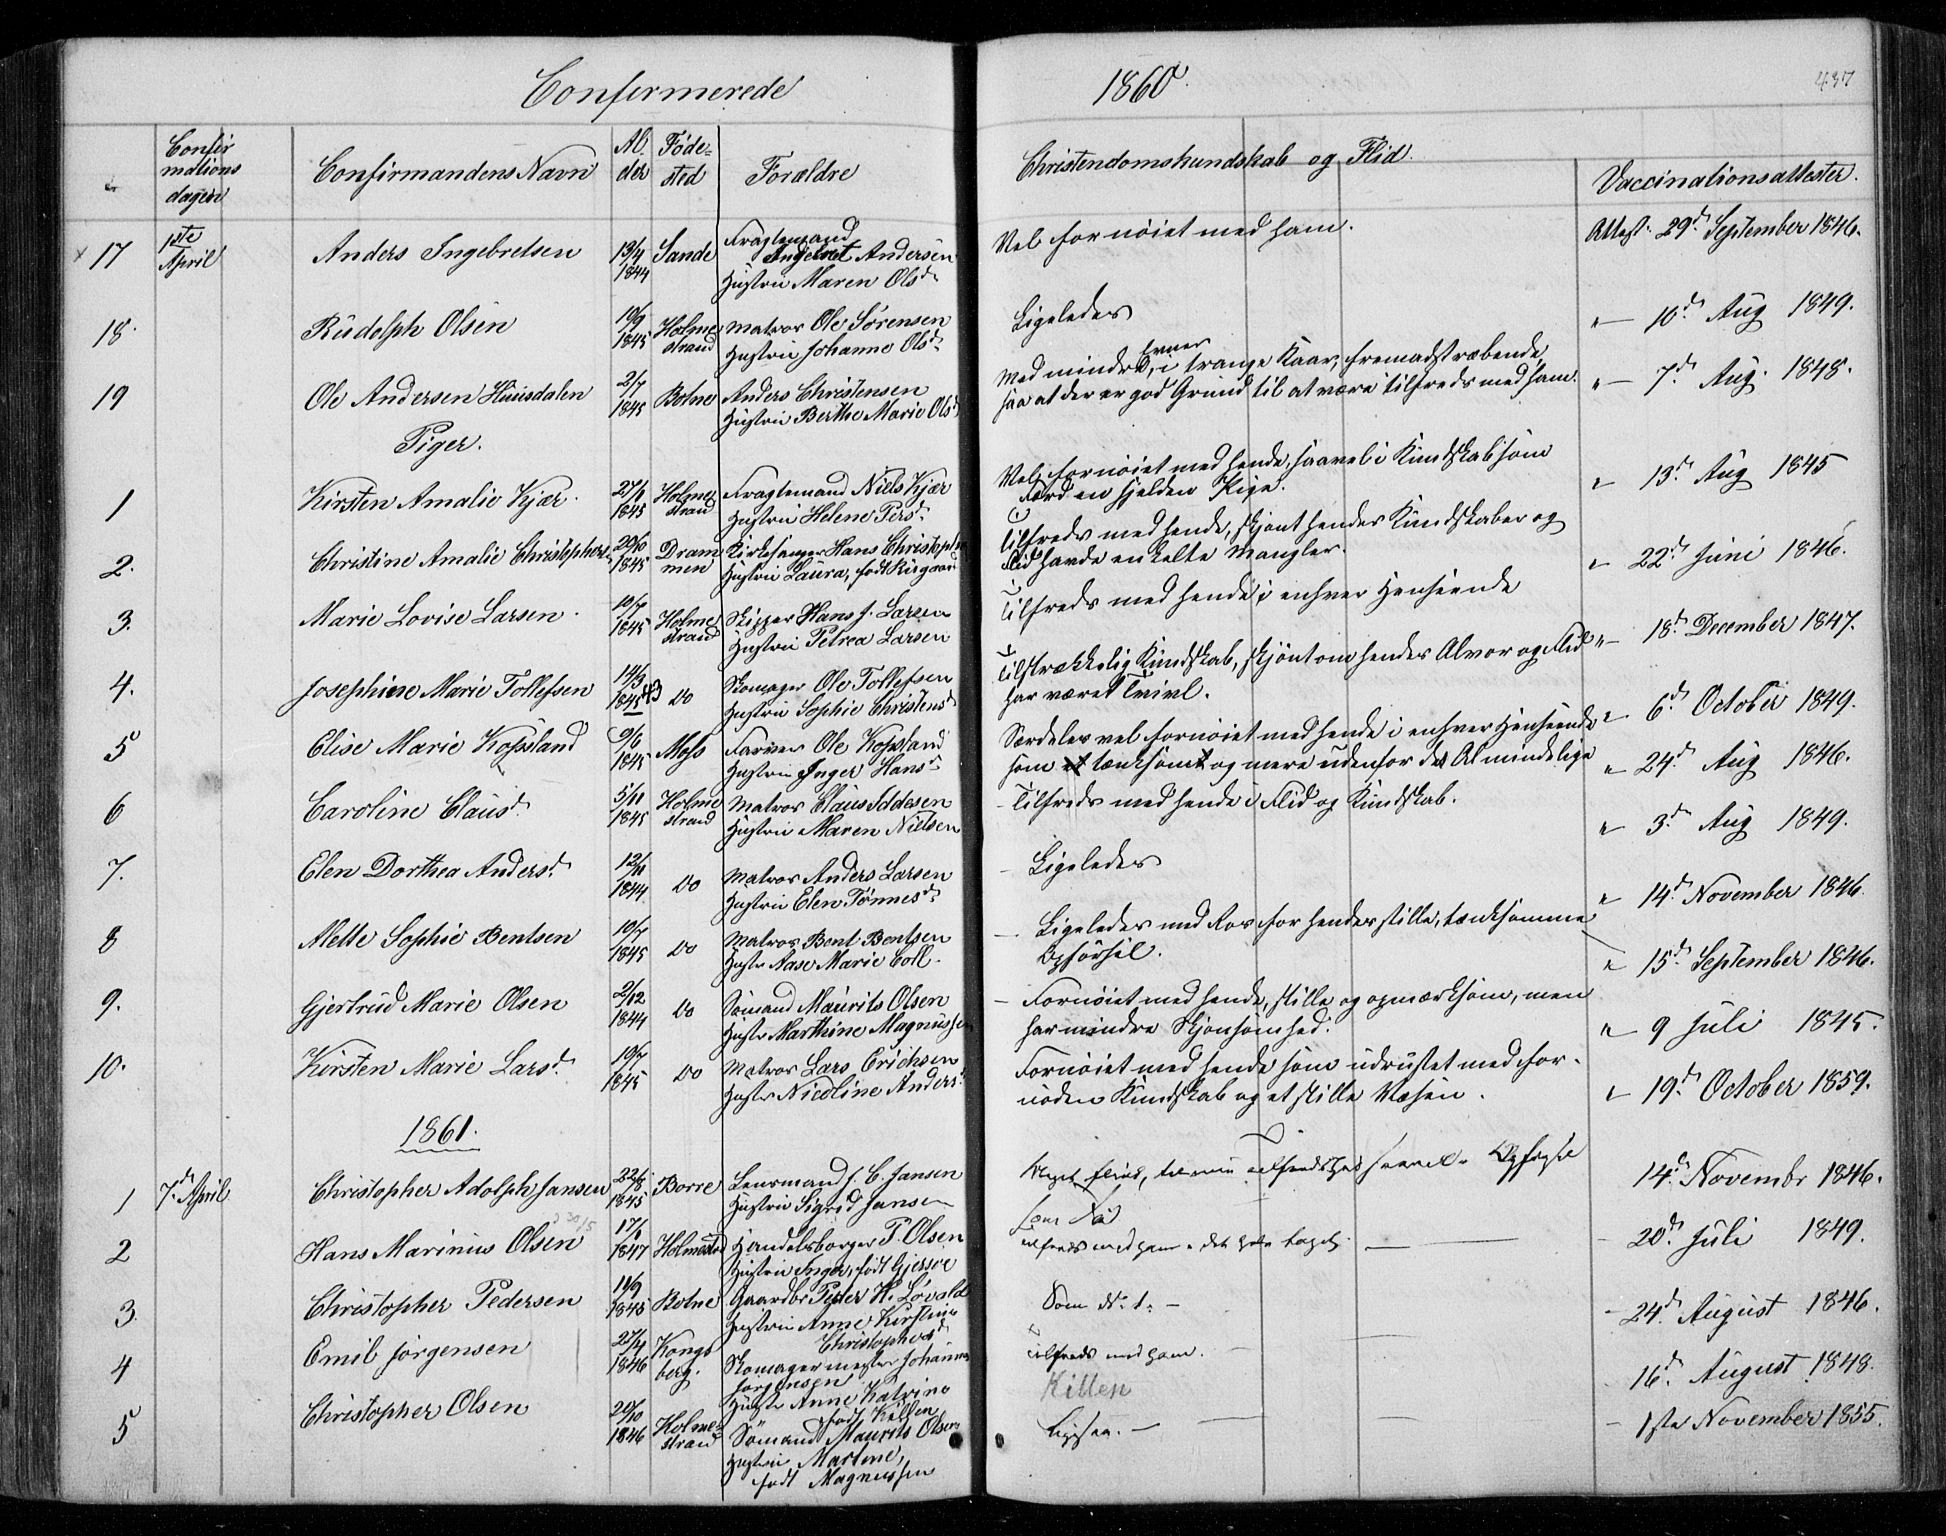 Confirmerede 1860.
437
Confir
mations
dagen
Confirmandens Navn
Al
der
Føde-
sted
Forældre
Christendomskundskab og Flid.
Vaccinationsattester.
17 1ste April Anders Ingebretsen 13/4 1844 Sande Fragtemand
Ingebret Andersen
Hustru Maren Olsd.
Vel fornøiet med ham.
Attest. 29d September 1846.
18. Rudolph Olsen 10/9 1845 Holmestrand Matros Ole Sørensen
Hustru Johanne Olsd.
Ligeledes
10d Aug 1849.
19 Ole Andersen Huusdalen 2/7 1845 Botne Anders Christensen
Hustru Berthe Marie Olsd
Med mindre Evner, i trange Kaar, fremadstræbende,
saa at der er god Grund til at være tilfreds med ham.
7d Aug. 1848.
Piger.
1 Kirsten Amalie Kjær. 1845 Holmestrand Fragtemand Niels Kjær
Hustru Helene Persd.
Vel fornøiet med hende, saavel i Kundskab som
Færd en sjelden Pige.
13d Aug 1845
2. Christine Amalie Christophers 20/10 1845 Drammen Kirkesanger Hans Christophe
Hustru Laura, født Riisgaard
Tilfreds med hende, skjønt hendes Kundskaber og
Flid havde enkelte Mangler.
22d Juni 1846.
3. Marie Lovise Larsen. 10/7 1845 Holmestrand Skipper Hans J. Larsen
Hustru Petrea Larsen
Tilfreds med hende i enhver Henseende
18d December 1847.
4. Josephine Marie Tollefsen 14/3 1845 43 do Skomager Ole Tollefsen
Hustru Sophie Christensd
Tilstrækkelig Kundskab, skjønt om hendes Alvor og Flid
har været Tvivl.
6d October 1849.
5 Elise Marie Kopsland 9/6 1845 Moss Farver Ole Kopsland
Hustru Inger Hansd.
Særdeles vel fornøiet med hende i enhver Henseende
som et tænksomt og mere udenfor det Almindelige
24d Aug 1846.
6 Caroline Clausd. 5/11 1845 Holmestrand Matros Claus Iddesen
Hustru Maren Nielsen
Tilfreds med hende i Flid og Kundskab.
3d Aug 1849.
7. Elen Dorthea Andersd. 1844 do Matros Anders Larsen
Hustru Elen Tønnesd.
Ligeledes
14d November 1846.
8 Mette Sophie Bentsen 10/7 1845 do Matros Bent Bentsen
Hustr Aase Marie Coll.
Ligeledes med Ros for hendes stille, tænksomme
Opførsel.
15d September 1846.
9. Gjertrud Marie Olsen 2/12 1844 do Sømand Maurits Olsen
Hustr Marthine Magnussen
Fornøiet med hende, stille og opmærksom, men
har mindre Skjønsomhed.
9 Juli 1845.
10. Kirsten Marie Larsd. 19/7 1845 do Matros Lars Erichsen
Hustr Nicoline Andersd.
Fornøiet med hende som udrustet med for-
nøden Kundskab og et stille Væsen.
19d October 1859.
1861.
1 7d April Christopher Adolph Jansen 22/8 1845 Borre Lensmand J. C. Jansen
Hustru Sigrid Jansen
Meget flink, til min Tilfredshed saavel Opførsel
som Flid
14d Novembr 1846.
2 Hans Marinus Olsen 1847 Holmestrd Handelsborger P. Olsen
Hustru Inger, født Gjersøe
Tilfreds med ham i det hele taget.
20d Juli 1849.
3. Christopher Pedersen 11/9 1845 Botne Gaardbr Peder H. Løvald
Hustru Anne Kirstine
Christophersd
Som No 1.
24d August 1846.
4 Emil Jørgensen 27/4 1846 Kongsberg. Skomagermester Johannes
Jørgensen
Hustr Anne Katrine
født Killen
Tilfreds med ham.
Killen
16d August 1848.
5 Christopher Olsen 20/10 1846 Holmestrand Sømand Maurits Olsen
Hustru Martine,
født Magnussen
Ligesaa.
1ste November 1855.